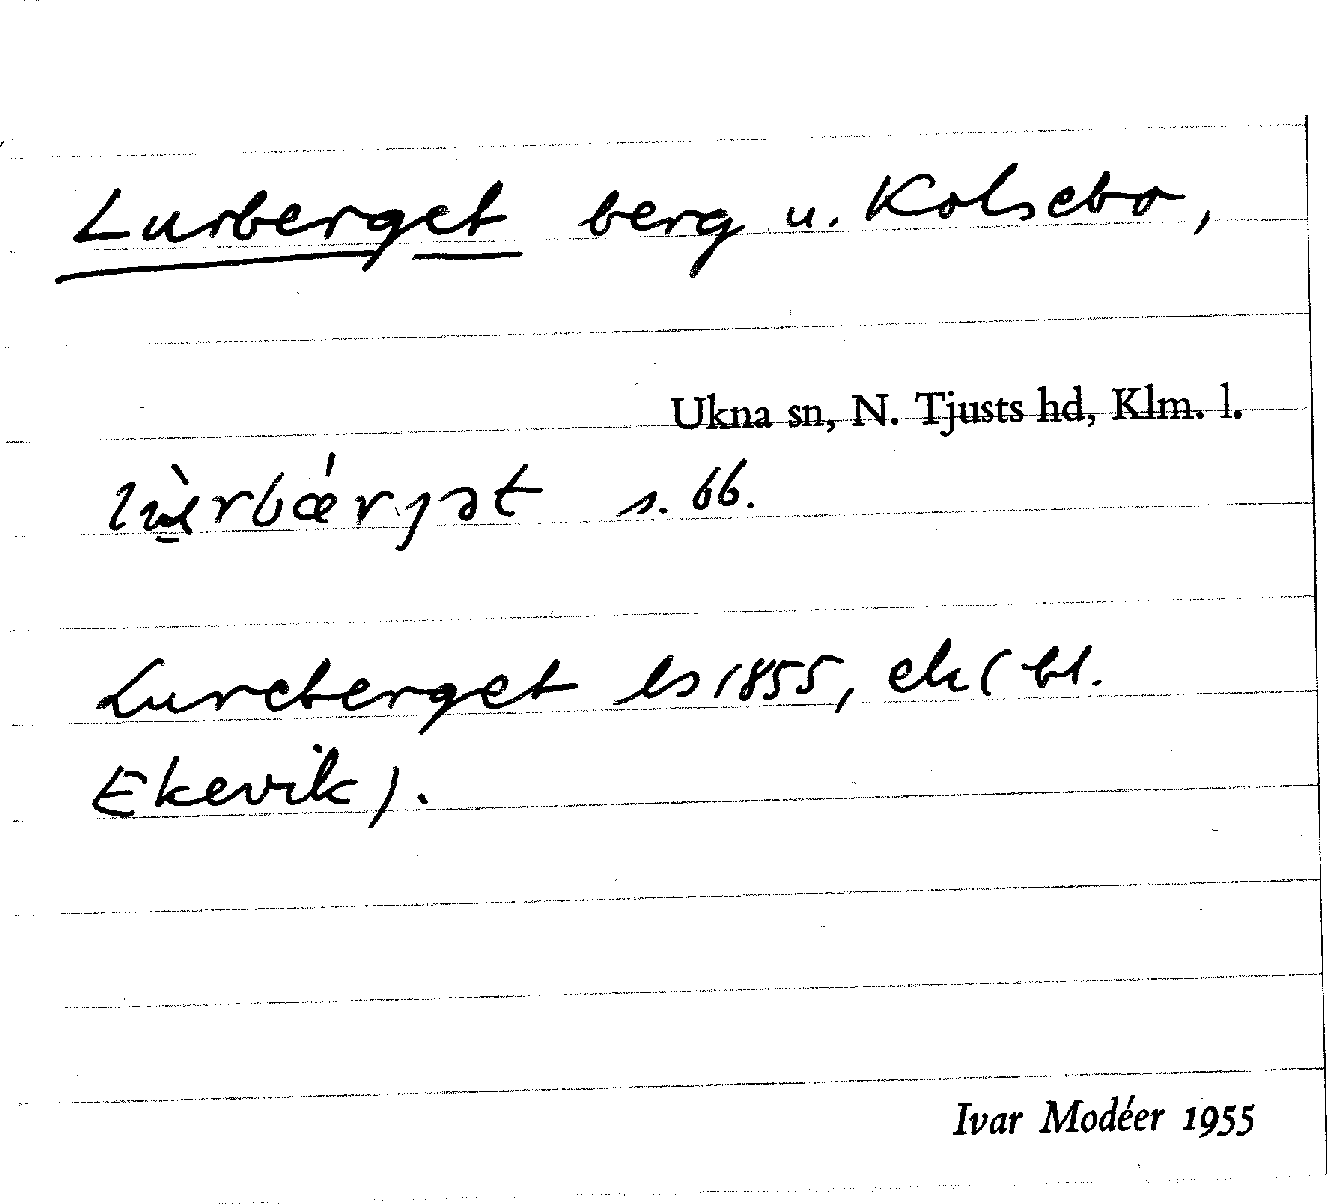 Lurberget berg u. Kolsebo,
Ukna sn, N. Tjusts hd, Klm. l.
lu̠̇̀rbǽrȷət s. 66.
Lureberget ls 1855, ek (bl.
Ekevik).
Ivar Modéer 1955